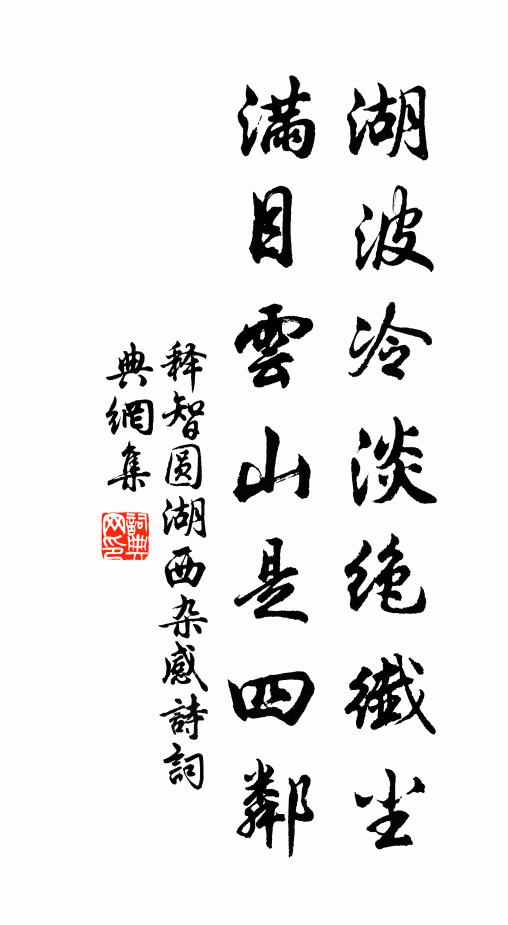 湖波冷淡绝纖尘
滿目雲山是四鄰
释智圆湖西杂感詩詞
典網集
詞典网印